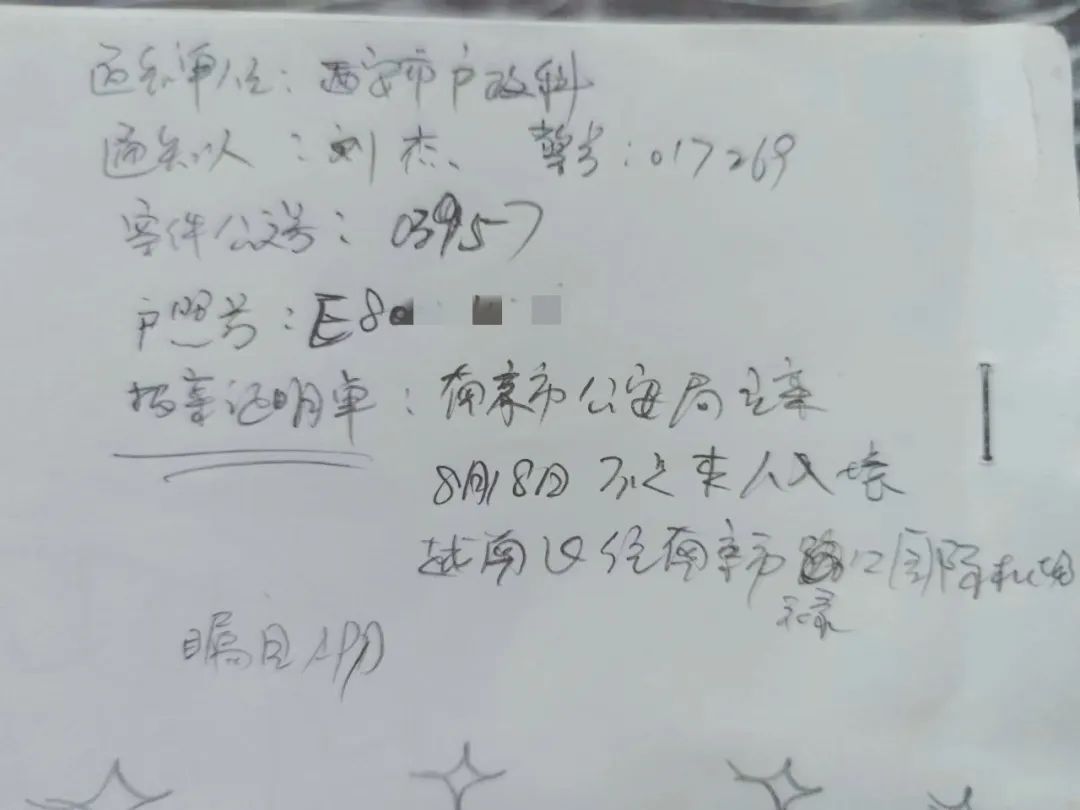 通知单位：西安市户政科
通知人：刘杰、警号：017269
案件公文号：03957
户照号：E8
报案证明单：南京市公安局立案
8月18日 不是本人入境
越南 经南京市 口国际机场
禄